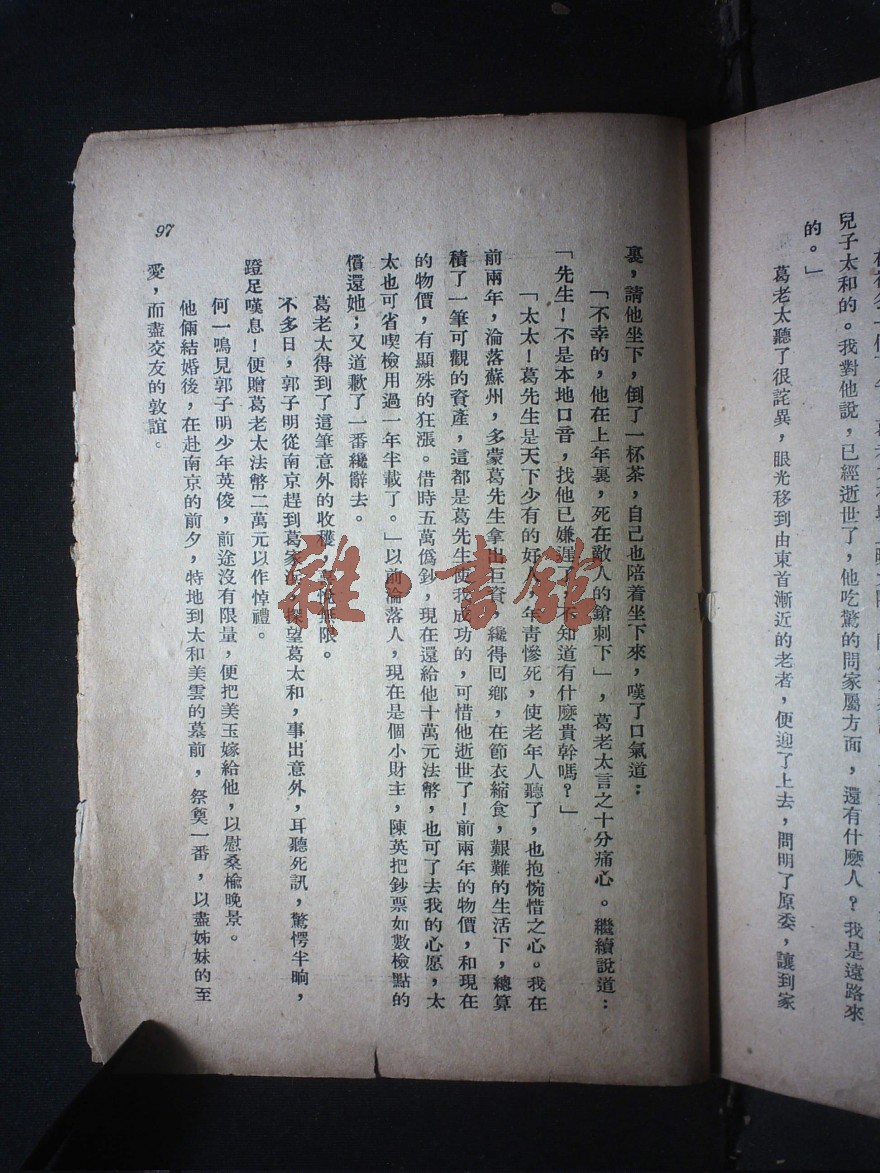 兒子太和的。我對他說，已經逝世了，他吃驚的問家屬方面，還有什麽人？我是遠路來
的。」
葛老太聽了很詫異，眼光移到由東首漸近的老者，便迎了上去，問明了原委，讓到家
裏，請他坐下，倒了一杯茶，自己也陪着坐下來，嘆了口氣道：
「不幸的，他在上年裏，死在敵人的鎗刺下」，葛老太言之十分痛心。繼續說道：
「先生！不是本地口音，找他已嫌遲了，不知道有什麽貴幹嗎？」
「太太！葛先生是天下少有的好人，年青慘死，使老年人聽了，也抱惋惜之心。我在
前兩年，淪落蘇州，多蒙葛先生拿出巨資，纔得回鄉，在節衣縮食，艱難的生活下，總算
積了一筆可觀的資產，這都是葛先生使我成功的，可惜他逝世了！前兩年的物價，和現在
的物價，有顯殊的狂漲。借時五萬僞鈔，現在還給他十萬元法幣，也可了去我的心愿，太
太也可省喫檢用過一年半載了。」以前淪落人，現在是個小財主，陳英把鈔票如數檢點的
償還她；又道歉了一番纔辭去。
葛老太得到了這筆意外的收穫，喜悅無限。
不多日，郭子明從南京趕到葛家浜，探望葛太和，事出意外，耳聽死訊，驚愕半晌，
蹬足嘆息！便贈葛老太法幣二萬元以作悼禮。
何一鳴見郭子明少年英俊，前途沒有限量，便把美玉嫁給他，以慰桑榆晚景。
他倆結婚後，在赴南京的前夕，特地到太和美雲的墓前，祭奠一番，以盡姊妹的至
愛，而盡交友的敦誼。
97
雜·書館